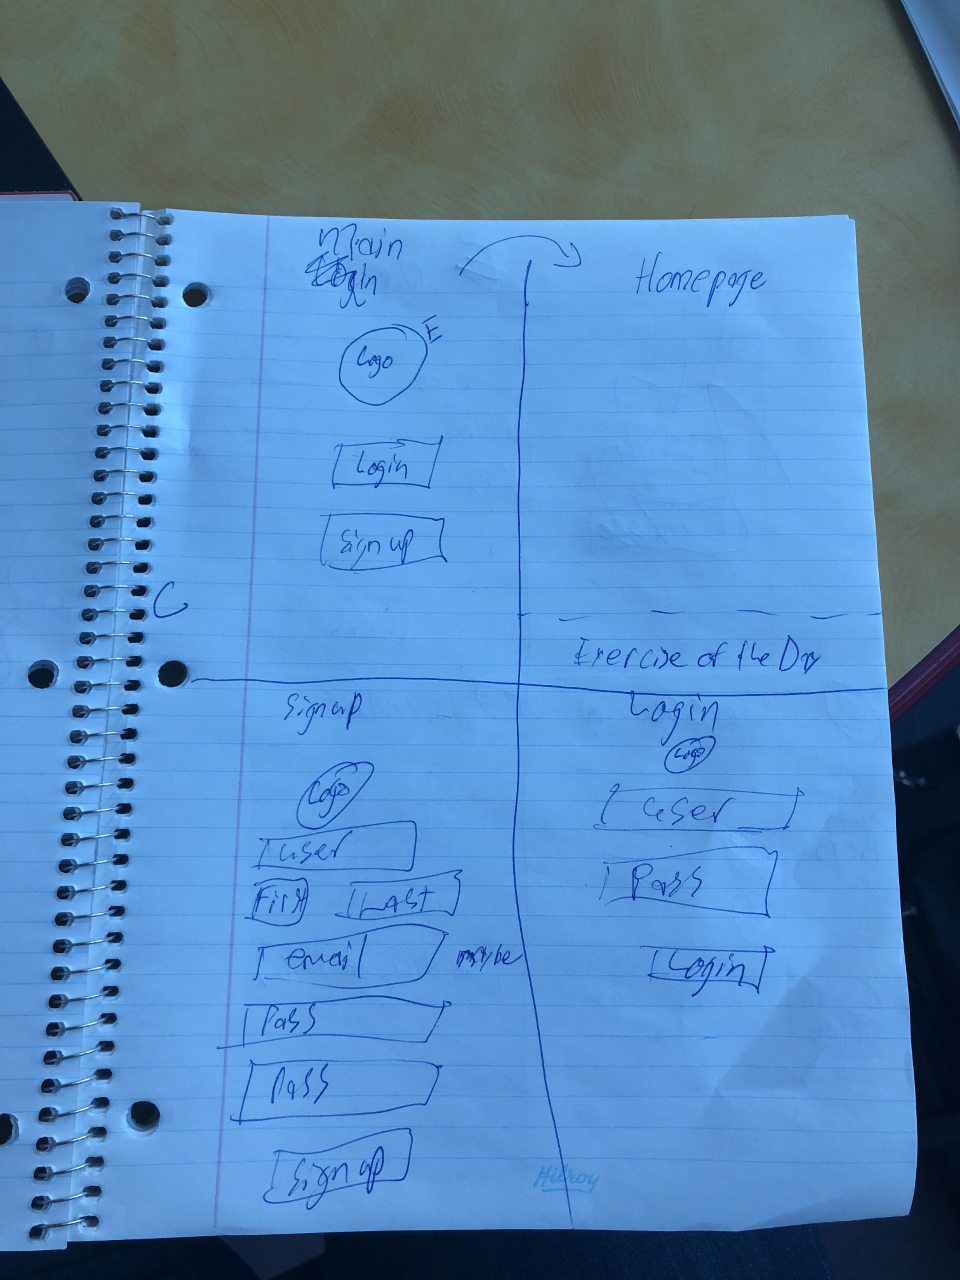 Main
Login
Logo
E
Login
Sign up
C
Homepage
Exercise of the Day
Signup
Logo
user
First Last
email maybe
Pass
Pass
Sign up
Login
Logo
user
Pass
Login
Hilroy